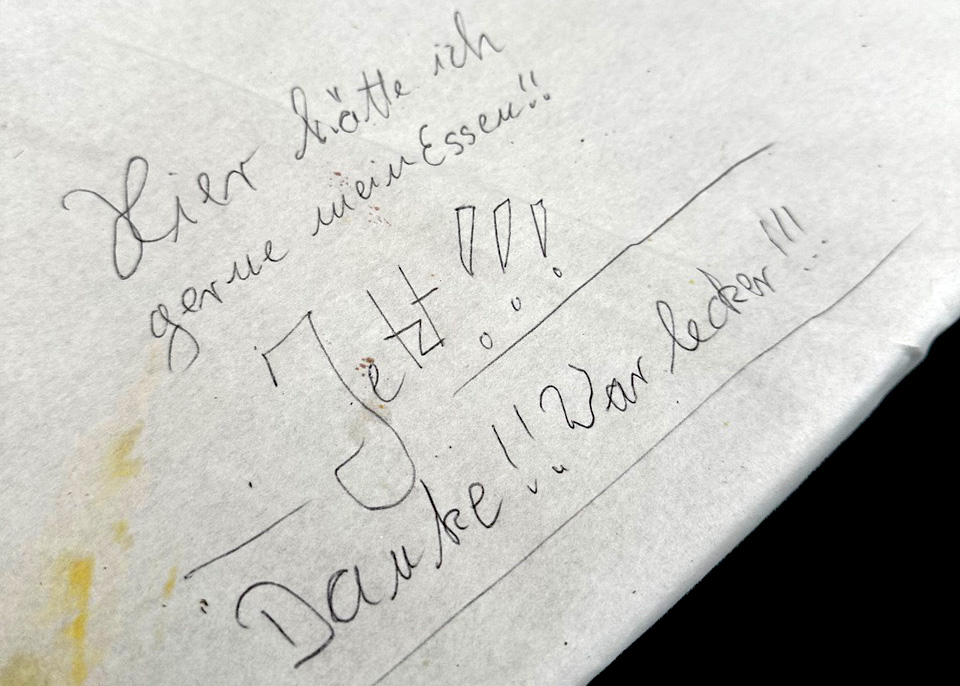 Hier hätte ich
gerne mein Essen!!
Jetzt!!!
Danke!! War lecker!!!